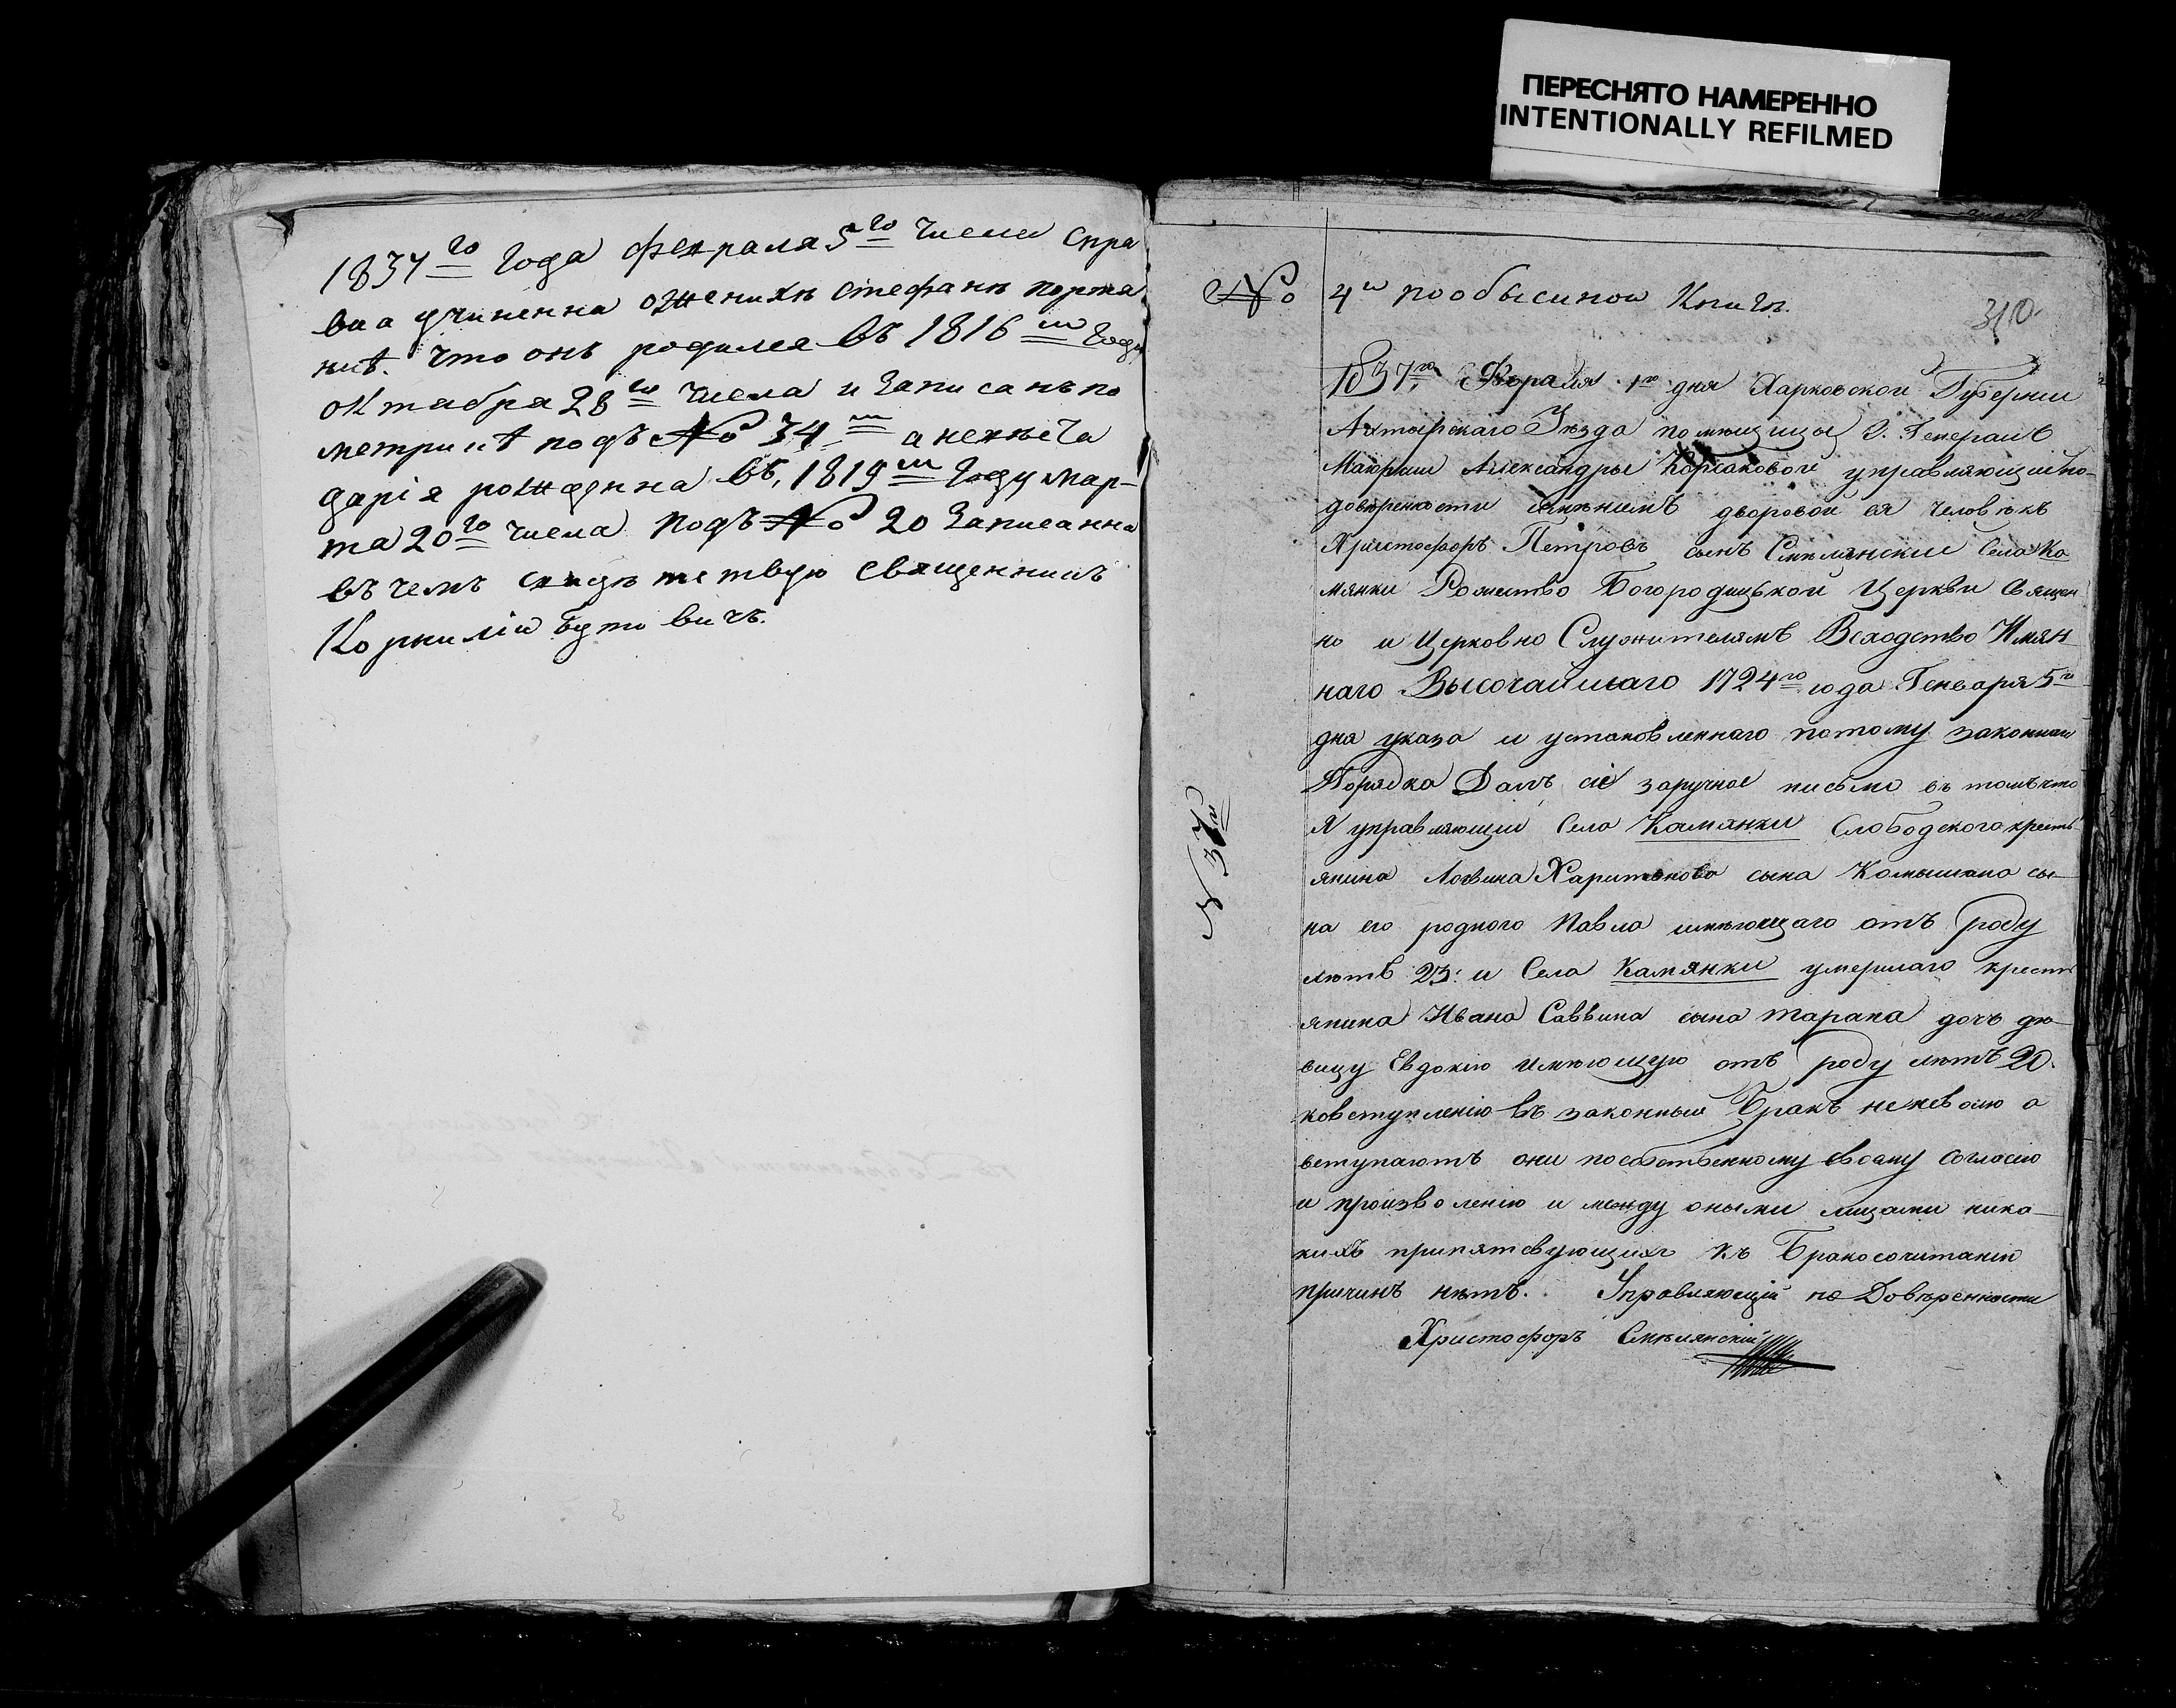 ПЕРЕСНЯТО НАМЕРЕННО
INTENTIONALLY REFILMED
1837го Года февраля 5го числа спра
вка учиненна ожених стефане
что онъ родился въ 1816м Году
октября 28го числа и Записанъ по
метрике подъ № 34м а невеста
дарія рожденна въ 1819м Году мар-
та 20го числа подъ № 20 Записанна
въ чемъ священникъ
Корнилій бутовичъ.
№ 4й пообыскной Книгѣ.
310.
1837го Февраля 1го дня Харковской Губерніи
Ахтырскаго Уѣзда помѣщицы Г. Генералъ
Маіорши Александры Корсаковой управляющій по
довѣренности имѣніемъ дворовой ея человѣкъ
Христофоръ Петровъ сынъ Смѣлянскій Села Ка
мянки Рожество Богородицкой Церкви Священ
но и Церковно Служителямъ Всходство Имян
наго Высочайшаго 1724го года Генваря 5го
дня указа и установленнаго потому законнаго
Порядка Далъ сіе заручное письмо въ томъ что
Я управляющій Села Камянки Слободского кресть
янина Логвина Харитонова сына сы
на его родного Павла имѣющаго отъ роду
лѣтъ 23: и Села Камянки умершаго кресть
янина Ивана Саввина сына Тарана дочь дѣ
вицу Евдокію имѣющую отъ роду лѣтъ 20.
ковступленію въ законный Бракъ неневолю а
вступаютъ они пособственному своему согласію
и произволенію и между оными лицами ника-
кихъ припятсвующихъ къ Бракосочитанію
причинъ нѣтъ. Управляющій по Довѣренности
Христофоръ Смѣлянскій
№ 37й